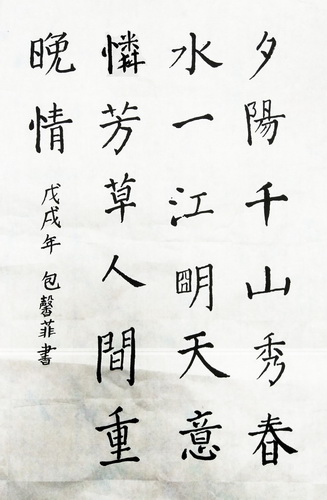 夕陽千山秀春
水一江朙天意
憐芳草人間重
晚情
戊戌年 包馨菲書